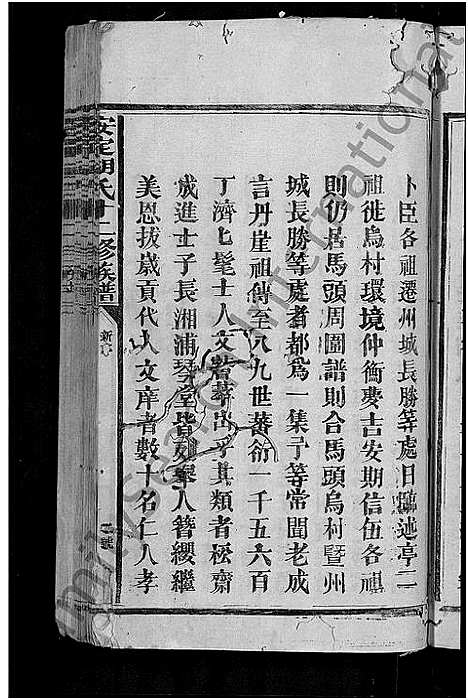 卜臣各祖遷州城長勝等處日臨述亭二
祖徙烏村環境仲衡慶吉安期信伍各祖
則仍居馬頭周圍譜則合馬頭烏村暨州
城長勝等處者都為一集予等常聞老成
言丹崖祖傳至八九世蕃衍一千五六百
丁濟七髦士人文蔚出乎其類者松齋
成進士子長湘浦琴堂人簪纓繼
美恩拔歲貢代人文庠者數十名仁人孝
安定胡氏十二修族譜
新序
milyseed.com International